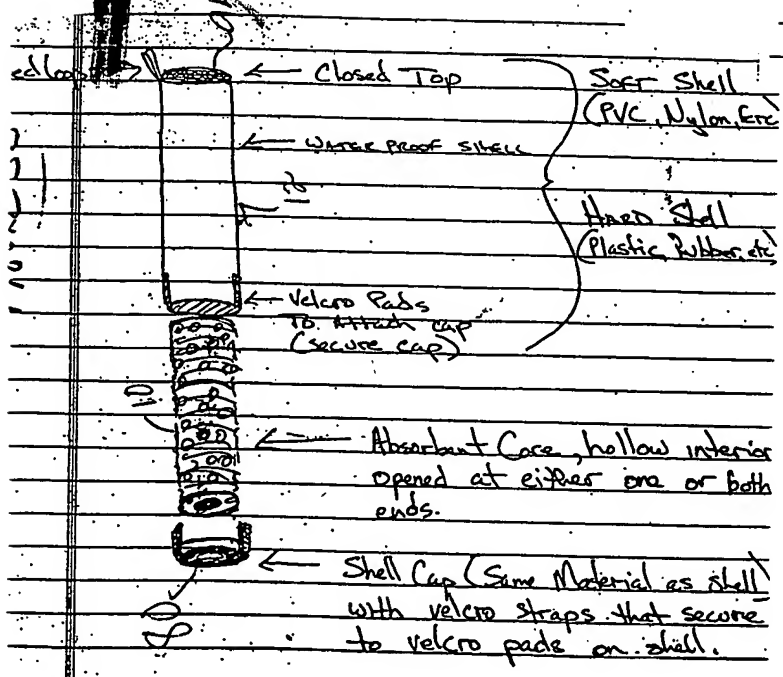 Closed Top
Soft Shell
(PVC, Nylon, Etc
WATER PROOF SHELL
12
HARD Shell
(Plastic, Rubber, etc)
Velcro Pads
To Attach cap
(secure cap)
10
Absorbant Core, hollow interior
opened at either one or both
ends.
Shell Cap (Same Material as shell)
with velcro straps that secure
to velcro pads on shell.